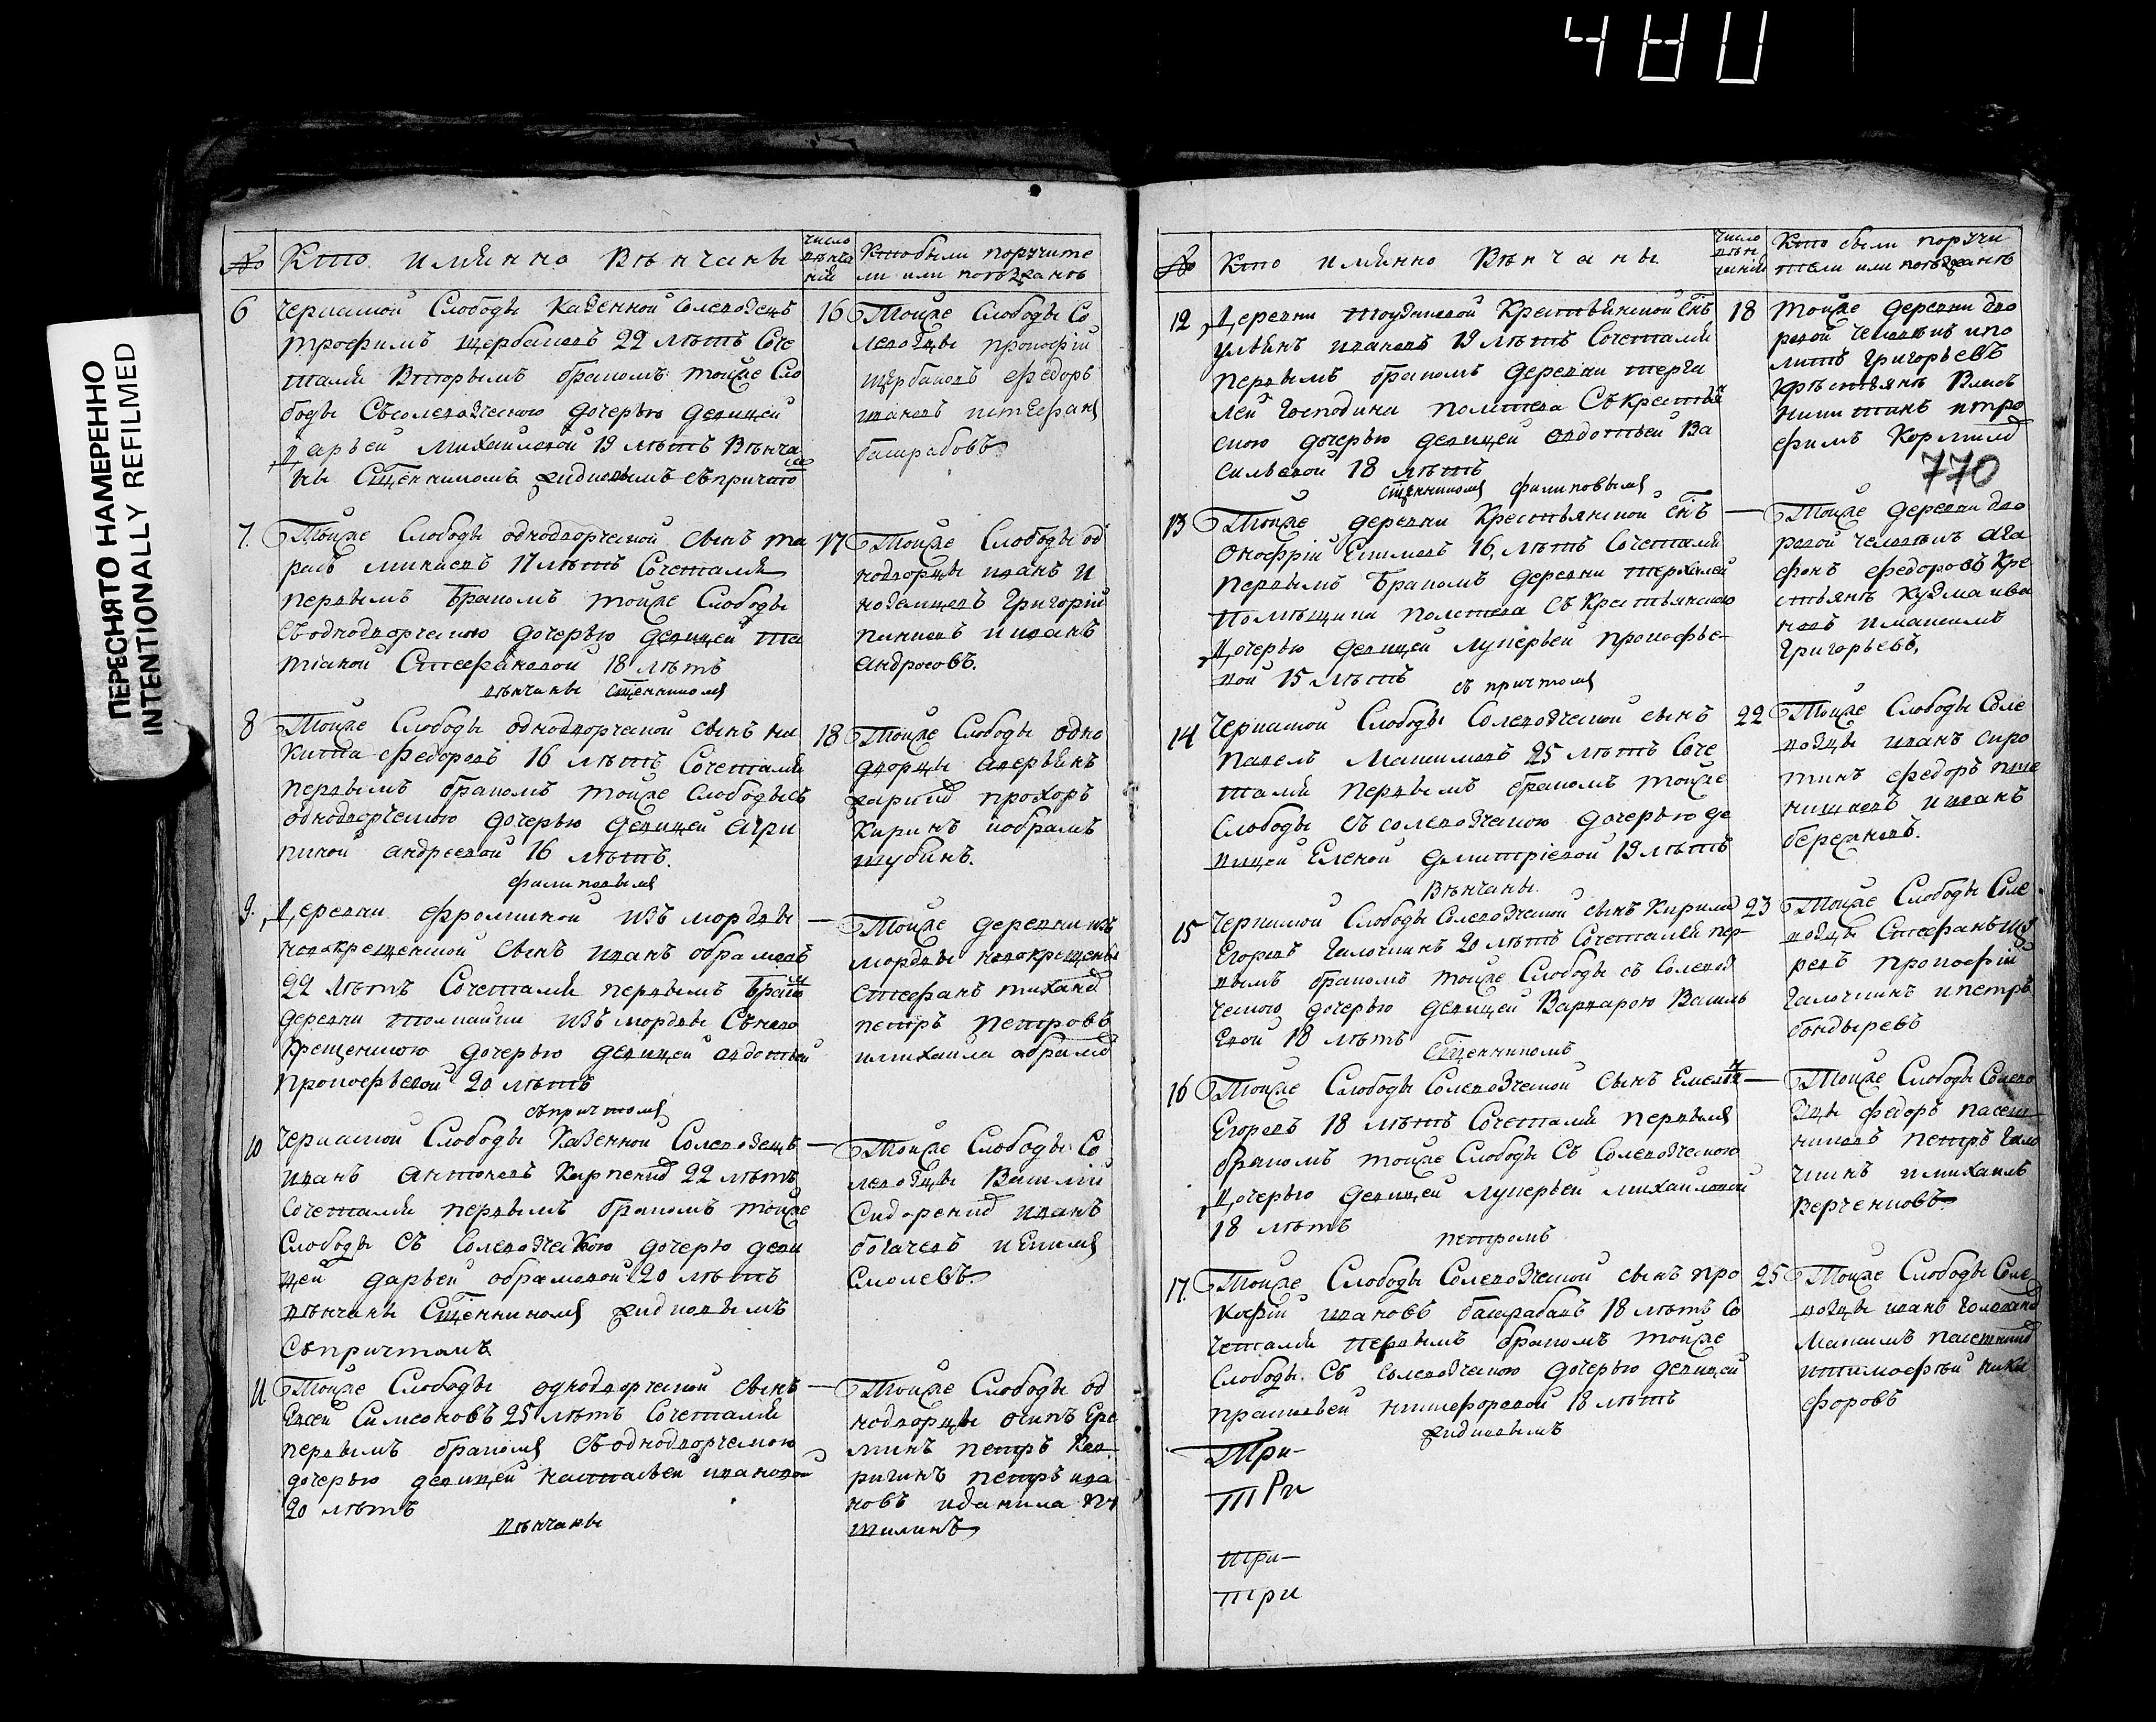 480
ПЕРЕСНЯТО НАМЕРЕННО
INTENTIONALLY REFILMED
№ Кто имянно Венчаны
число венча ний
Кто были поручите
ли или поезжанѣ
6 Черкаской Слободы Казенной Солевозецъ
Трофимъ Щербаковъ 22 лѣтъ Соче
тался Вторымъ бракомъ тойже Сло
боды Съсолевозческою дочерью девицей
Дарьей Михаиловой 19 лѣтъ Вѣнча
ны Сщенникомъ съпричто
16 Тойже Слободы Со
левозцы прокофій
щербаковъ федоръ
ивановъ истефанъ
башрабовъ
7. Тойже Слободы однодворческой сынъ та
расъ 17 лѣтъ Сочетался
первымъ бракомъ тойже Слободы
съоднодворческою дочерью девицей та
тіаной Стефановой 18 лѣтъ
вѣнчаны сщенникомъ
17 Тойже Слободы од
нодворцы иванъ и
григорій
ииванъ
андросовъ.
8 Тойже Слободы однодворческой сынъ ни
кита федоровъ 16 лѣтъ Сочетался
первымъ бракомъ тойже слободысъ
однодворческою дочерью девицей агри
пиной андреевой 16 лѣтъ.
филиповымъ
18 Тойже Слободы одно
дворцы аверьянъ
прохоръ
Киринъ иобрамъ
шубинъ.
9. Деревни фромкиной изъ мордвы
новокрещенской сынъ иванъ обрамовъ
22 лѣтъ Сочетался первымъ Бракомъ
деревни изъ мордвы Съново
крещенскою дочерью девицей авдотьей
прокофьевой 20 лѣтъ
съпричтомъ
— Тойже деревни изъ
мордвы новокрещены
стефанъ
петръ петровъ
имихаила обрамов
10 Черкаской Слободы Казенной Солевозецъ
иванъ антоновъ Карпенков 22 лѣтъ
Сочетался первымъ бракомъ тойже
Слободы съ Солевозческою дочерю деви
цей дарьей обрамовой 20 лѣтъ
вѣнчаны Сщенникомъ
Съпричтомъ
— Тойже Слободы Со
левозцы Василій
Сидоренков иванъ
богачевъ иЕкимъ
Смолевъ.
11 Тойже Слободы однодворческой сынъ
Евсей Симеоновъ 25 лѣтъ Сочетался
первымъ бракомъ съоднодворческою
дочерью девицей настасьей ивановой
20 лѣтъ
вѣнчаны
— Тойже Слободы од
нодворцы осипъ Ере
минъ петръ Кав
ригинъ петръ ива
новъ иданила
шилинъ
№ Кто имянно Вѣнчаны
число вѣн чаній
Кто были поручи
тели или поезжанѣ
12 Деревни Крестьянской снъ
ульянъ ивановъ 19 лѣтъ Сочетался
первымъ бракомъ деревни
господина полтева Съкрестьян
скою дочерью девицей авдотьей Ва
сильевой 18 лѣтъ
сщенникомъ филиповымъ
18 тойже деревни дво
ровой человекъ ипо
литъ григорьевъ
крестьянъ Власъ
никитинъ итро
фимъ Кормилов
770
13 Тойже деревни Крестьянской снъ
Онофрій Екимовъ 16 лѣтъ Сочетался
первымъ Бракомъ деревни
Помѣщика полтева Съ Крестьянскою
Дочерью девицей лукерьей прокофье-
вой 15 лѣтъ
съ причтомъ
— Тойже деревни дво
ровой человекъ ага
фонъ федоровъ Кре
стьянъ Кузма ива
новъ имаксимъ
Григорьевъ.
14 Черкаской Слободы Солевозческой сынъ
Павелъ Максимовъ 25 лѣтъ Соче
тался первымъ бракомъ тойже
Слободы съсолевозческою дочерью де
вицей Еленой дмитріевой 19 лѣтъ
Вѣнчаны
22 Тойже Слободы Соле
возцы иванъ сиро
тинъ федоръ пше
ничновъ ииванъ
бережновъ.
15 Черкаской Слободы Солевозческой сынъ Кирила
Егоровъ Галочкинъ 20 лѣтъ Сочетался пер-
вымъ бракомъ тойже Слободы съ Солевоз
ческою дочерью девицей Варварою Василь
Евой 18 лѣтъ
Сщенникомъ
23 Тойже Слободы Соле
возцы Стефанъ
прокофій
Галочкинъ ипетръ
бондыревъ
16 Тойже Слободы Солевозческой сынъ Емельян
Егоровъ 18 лѣтъ Сочетался первымъ
бракомъ тойже Слободы Съ Солевозческою
Дочерью девицей лукерьей михаиловой
18 лѣтъ
петромъ
— Тойже Слободы Солево
зцы федоръ пасеш
никовъ петръ Гало
чкинъ имихаилъ
Верченковъ
17. Тойже Слободы Солевозческой сынъ про
кофій ивановъ башрабовъ 18 лѣтъ Со
четался первымъ бракомъ тойже
Слободы Съ солевозческою дочерью девицей
прасковьей никифоровой 18 лѣтъ
25 Тойже Слободы Соле
возцы иванъ Головков
Максимъ
итимофѣй ники
форовъ
Три-
ТРи
три-
три